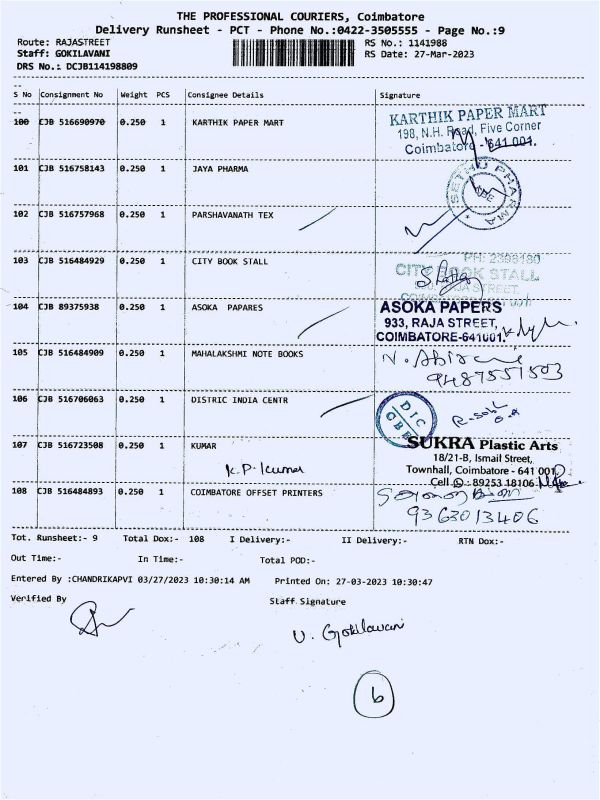 THE PROFESSIONAL COURIERS, Coimbatore
Delivery Runsheet - PCT - Phone No.:0422-3505555 - Page No.:9
Route: RAJASTREET RS No.: 1141988
Staff: GOKILAVANI RS Date: 27-Mar-2023
DRS No.: DCJB114198809
S No Consignment No Weight PCS Consignee Details Signature
100 CJB 516690970 0.250 1 KARTHIK PAPER MART
KARTHIK PAPER MART
198, N.H. Road, Five Corner
Coimbatore - 641 001.
101 CJB 516758143 0.250 1 JAYA PHARMA
SETHU PHARMA
CBE
102 CJB 516757968 0.250 1 PARSHAVANATH TEX
103 CJB 516484929 0.250 1 CITY BOOK STALL
CITY BOOK STALL
104 CJB 89375938 0.250 1 ASOKA PAPARES
ASOKA PAPERS
933, RAJA STREET,
COIMBATORE-641001.
105 CJB 516484909 0.250 1 MAHALAKSHMI NOTE BOOKS
9487551503
106 CJB 516706063 0.250 1 DISTRIC INDIA CENTR
DIC
CBE
107 CJB 516723508 0.250 1 KUMAR
K.P. Kumar
SUKRA Plastic Arts
18/21-B, Ismail Street,
Townhall, Coimbatore - 641 001.
Cell : 89253 18106
108 CJB 516484893 0.250 1 COIMBATORE OFFSET PRINTERS
9363013406
Tot. Runsheet:- 9 Total Dox:- 108 I Delivery:- II Delivery:- RTN Dox:-
Out Time:- In Time:- Total POD:-
Entered By :CHANDRIKAPVI 03/27/2023 10:30:14 AM Printed On: 27-03-2023 10:30:47
Verified By Staff Signature
V. Gokilavani
6